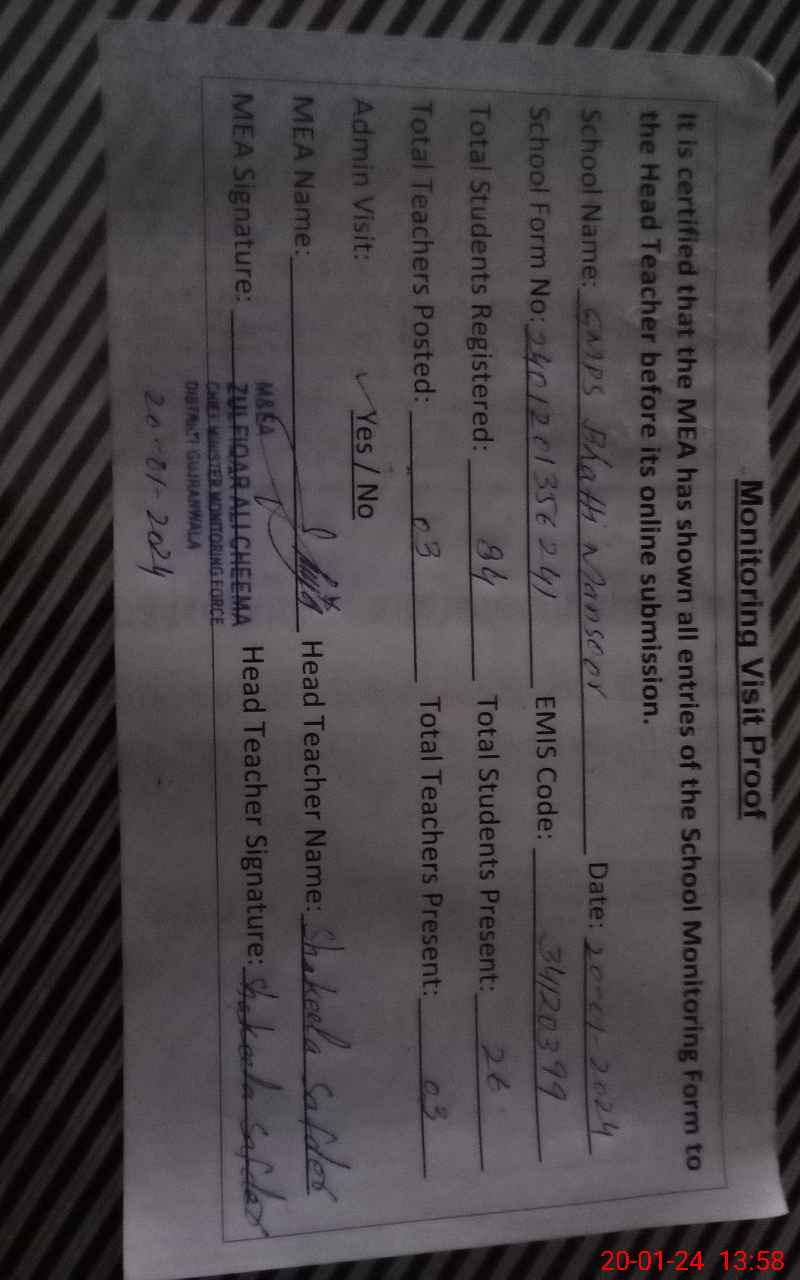 Monitoring Visit Proof
It is certified that the MEA has shown all entries of the School Monitoring Form to
the Head Teacher before its online submission.
School Name: GMPS Bhatti Mansoor Date: 20-01-2024
School Form No: 2401201356241 EMIS Code: 34120399
Total Students Registered: 84 Total Students Present: 26
Total Teachers Posted: 03 Total Teachers Present: 03
Admin Visit: ✓ Yes / No
MEA Name: Head Teacher Name: Shakeela Safdar
MEA Signature: Head Teacher Signature: Shakeela Safdar
M&EA
ZULFIQAR ALI CHEEMA
CHIEF MINISTER MONITORING FORCE
DISTRICT GUJRANWALA
20-01-2024
20-01-24 13:58